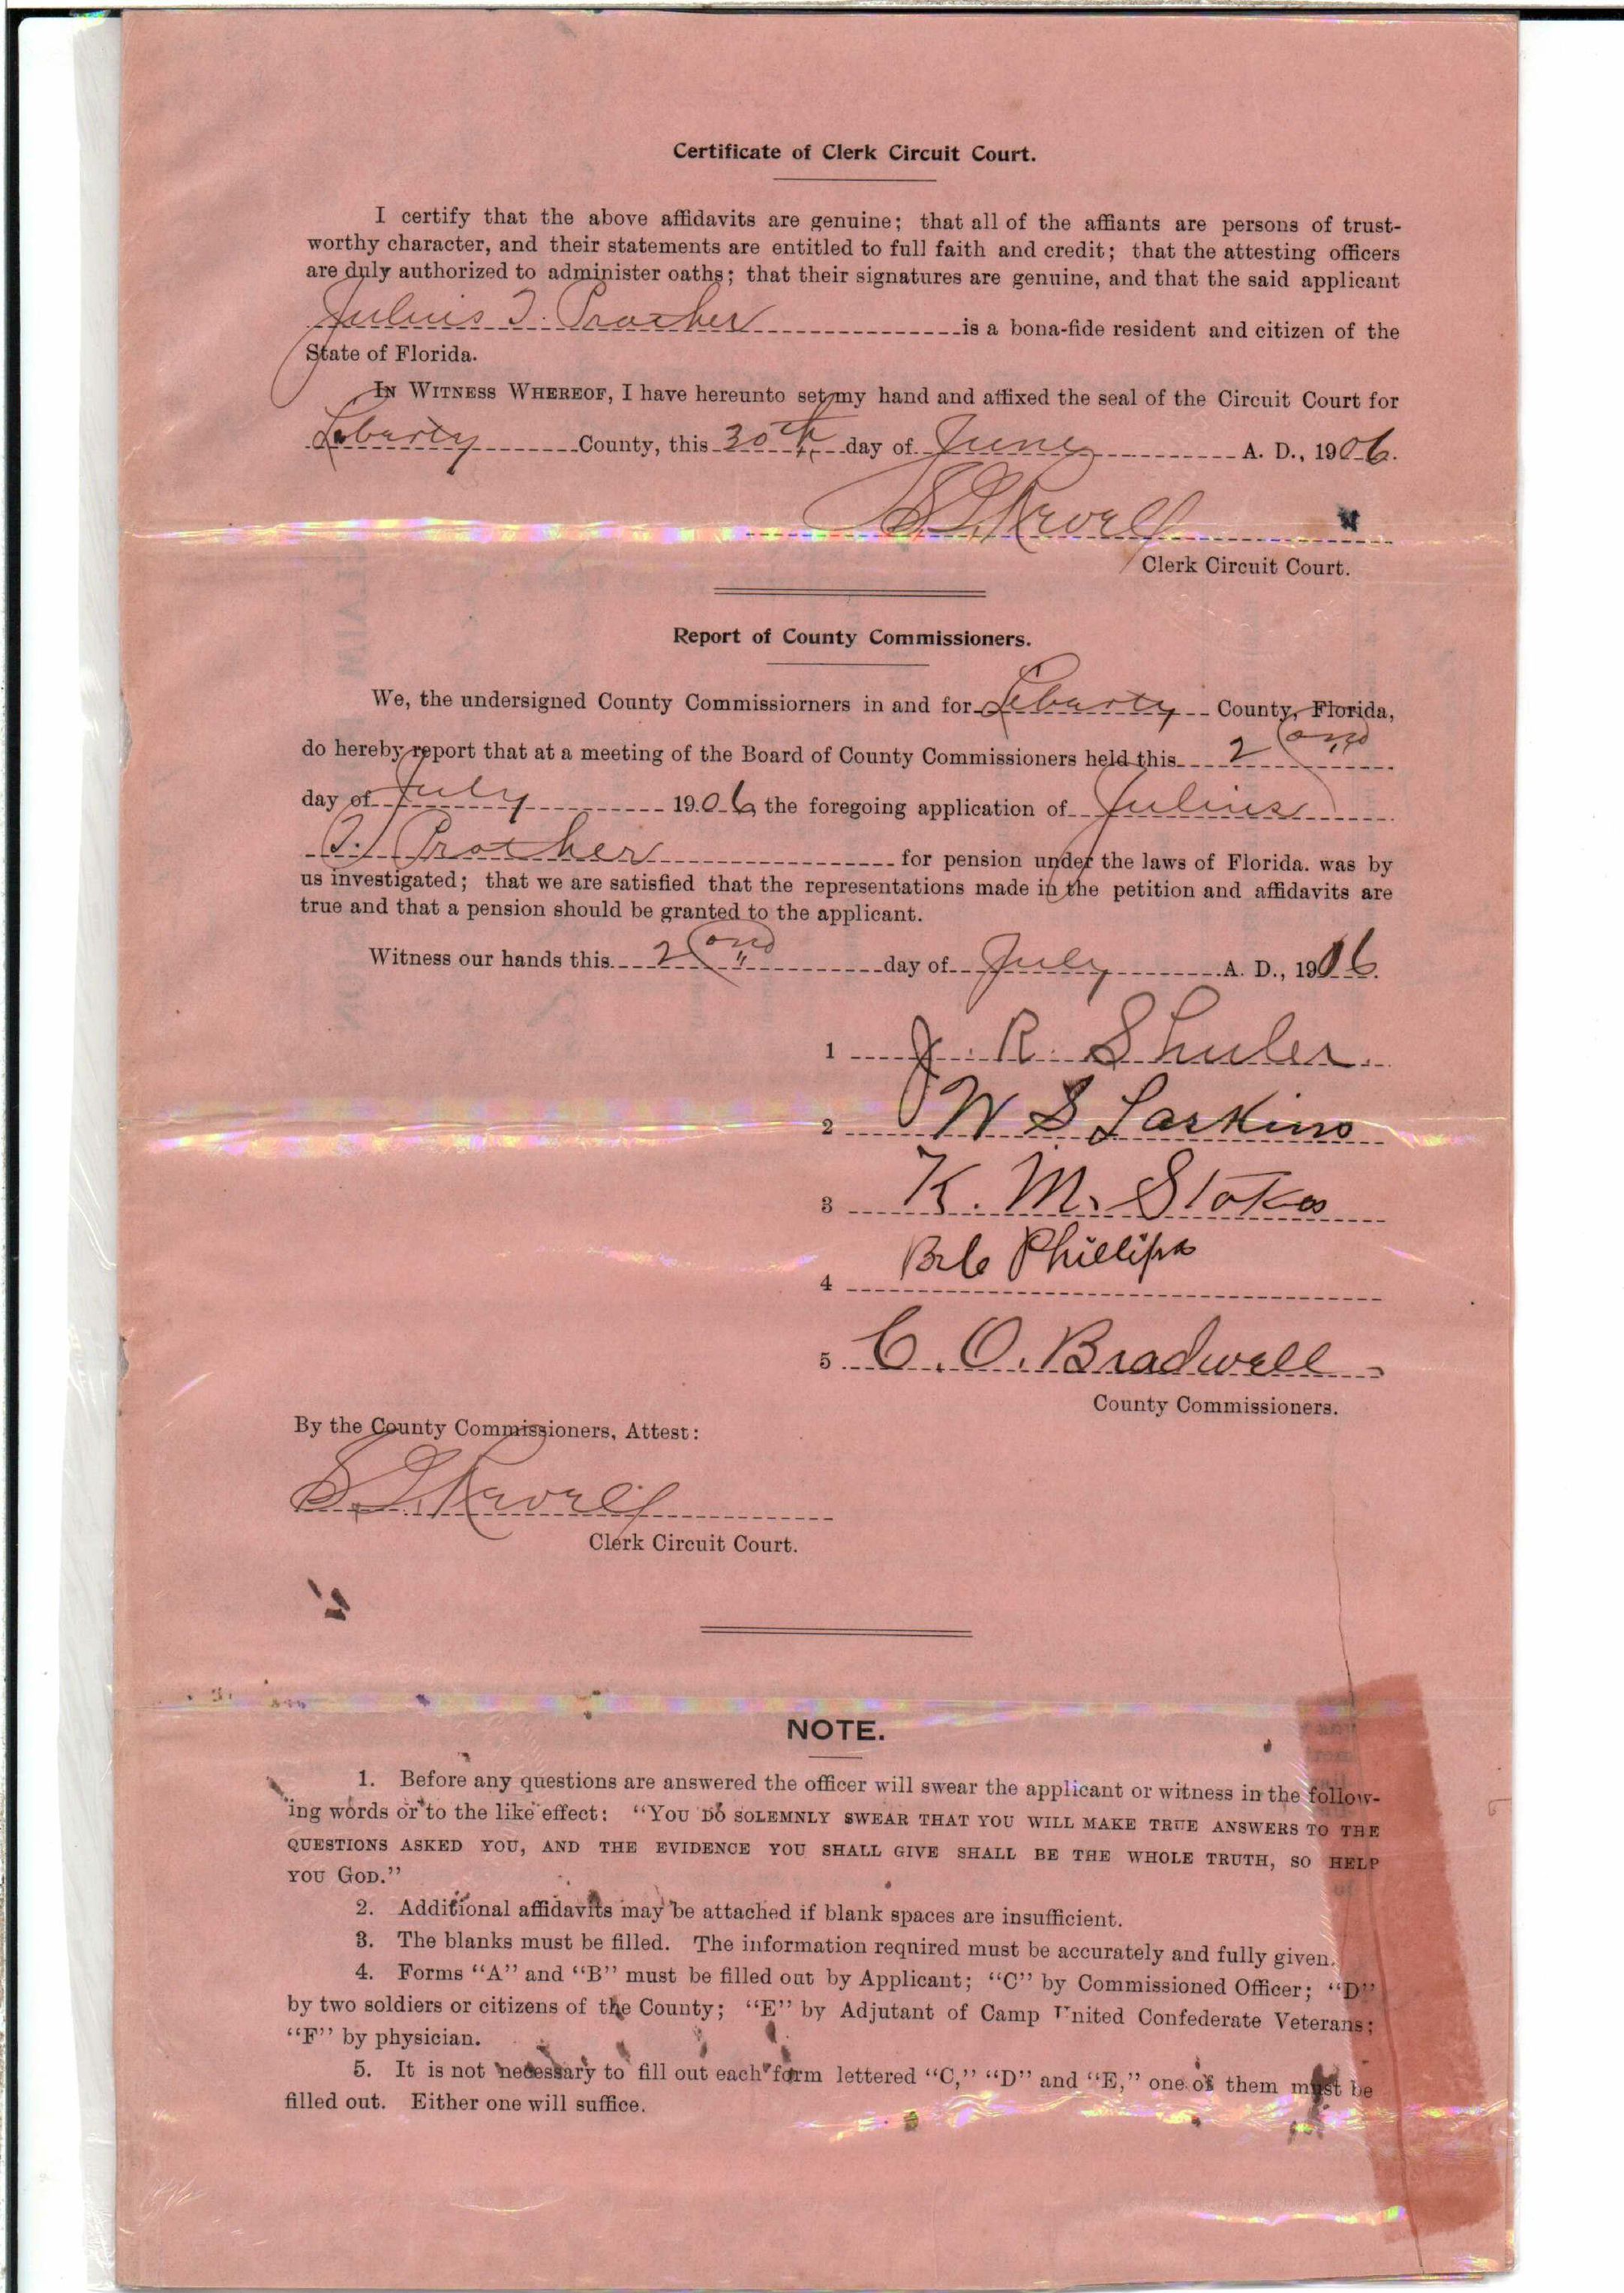 Certificate of Clerk Circuit Court.
I certify that the above affidavits are genuine; that all of the affiants are persons of trust-
worthy character, and their statements are entitled to full faith and credit; that the attesting officers
are duly authorized to administer oaths; that their signatures are genuine, and that the said applicant
Julius T. Prather is a bona-fide resident and citizen of the
State of Florida.
IN WITNESS WHEREOF, I have hereunto set my hand and affixed the seal of the Circuit Court for
Liberty County, this 30th day of June A. D., 1906.
S L Revell
Clerk Circuit Court.
Report of County Commissioners.
We, the undersigned County Commissiorners in and for Liberty County, Florida,
do hereby report that at a meeting of the Board of County Commissioners held this 2nd
day of July 1906, the foregoing application of Julius
T. Prather for pension under the laws of Florida. was by
us investigated; that we are satisfied that the representations made in the petition and affidavits are
true and that a pension should be granted to the applicant.
Witness our hands this 2nd day of July A. D., 1906.
1 J. R. Shuler.
2 W S Larkins
3 K. M. Stokes
4 Phillips
5 C. O. Bradwell
County Commissioners.
By the County Commissioners, Attest:
S. L. Revell
Clerk Circuit Court.
NOTE.
1. Before any questions are answered the officer will swear the applicant or witness in the follow-
ing words or to the like effect: "YOU DO SOLEMNLY SWEAR THAT YOU WILL MAKE TRUE ANSWERS TO THE
QUESTIONS ASKED YOU, AND THE EVIDENCE YOU SHALL GIVE SHALL BE THE WHOLE TRUTH, SO HELP
YOU GOD."
2. Additional affidavits may be attached if blank spaces are insufficient.
3. The blanks must be filled. The information required must be accurately and fully given.
4. Forms "A" and "B" must be filled out by Applicant; "C" by Commissioned Officer; "D"
by two soldiers or citizens of the County; "E" by Adjutant of Camp United Confederate Veterans;
"F" by physician.
5. It is not necessary to fill out each form lettered "C," "D" and "E," one of them must be
filled out. Either one will suffice.